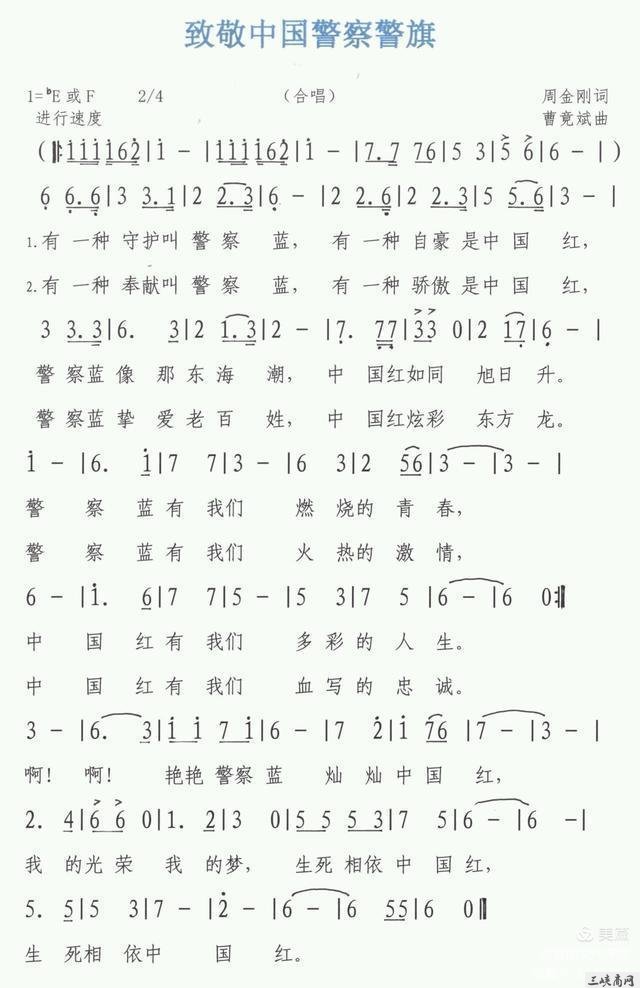 致敬中国警察警旗
1=♭E或F 2/4 (合唱) 周金刚词
进行速度 曹竟斌曲
(‖: i i i i 6 2 | i - | i i i i 6 2 | i - | 7. 7 7 6 | 5 3 | 5 6 | 6 - | )
6 6. 6 | 3 3. 1 | 2 2. 3 | 6 - | 2 2. 6 | 2 2. 3 | 5 5. 6 | 3 - |
1.有 一种 守护叫 警察 蓝, 有 一种 自豪 是中 国 红,
2.有 一种 奉献叫 警察 蓝, 有 一种 骄傲 是中 国 红,
3 3. 3 | 6. 3 | 2 1. 3 | 2 - | 7. 7 7 | 3 3 0 | 2 1 7 | 6 - |
警 察蓝 像 那 东 海 潮, 中 国红如同 旭日 升。
警 察蓝 挚 爱 老 百 姓, 中 国红炫彩 东方 龙。
i - | 6. i | 7 7 | 3 - | 6 3 | 2 5 6 | 3 - | 3 - |
警 察 蓝 有 我们 燃 烧的 青 春,
警 察 蓝 有 我们 火 热的 激 情,
6 - | i. 6 | 7 7 | 5 - | 5 3 | 7 5 | 6 - | 6 0 :‖
中 国 红 有 我们 多 彩 的 人 生。
中 国 红 有 我们 血 写 的 忠 诚。
3 - | 6. 3 | i i 7 i | 6 - | 7 2 | i 7 6 | 7 - | 3 - |
啊! 啊! 艳艳 警察 蓝 灿 灿 中 国 红,
2. 4 | 6 6 0 | 1. 2 | 3 0 | 5 5 5 3 | 7 5 | 6 - | 6 - |
我 的光 荣 我 的 梦, 生死 相依 中 国 红,
5. 5 | 5 3 | 7 - | 2 - | 6 - | 6 5 5 | 6 0 ‖
生 死相 依中 国 红。
美篇
三峡商网